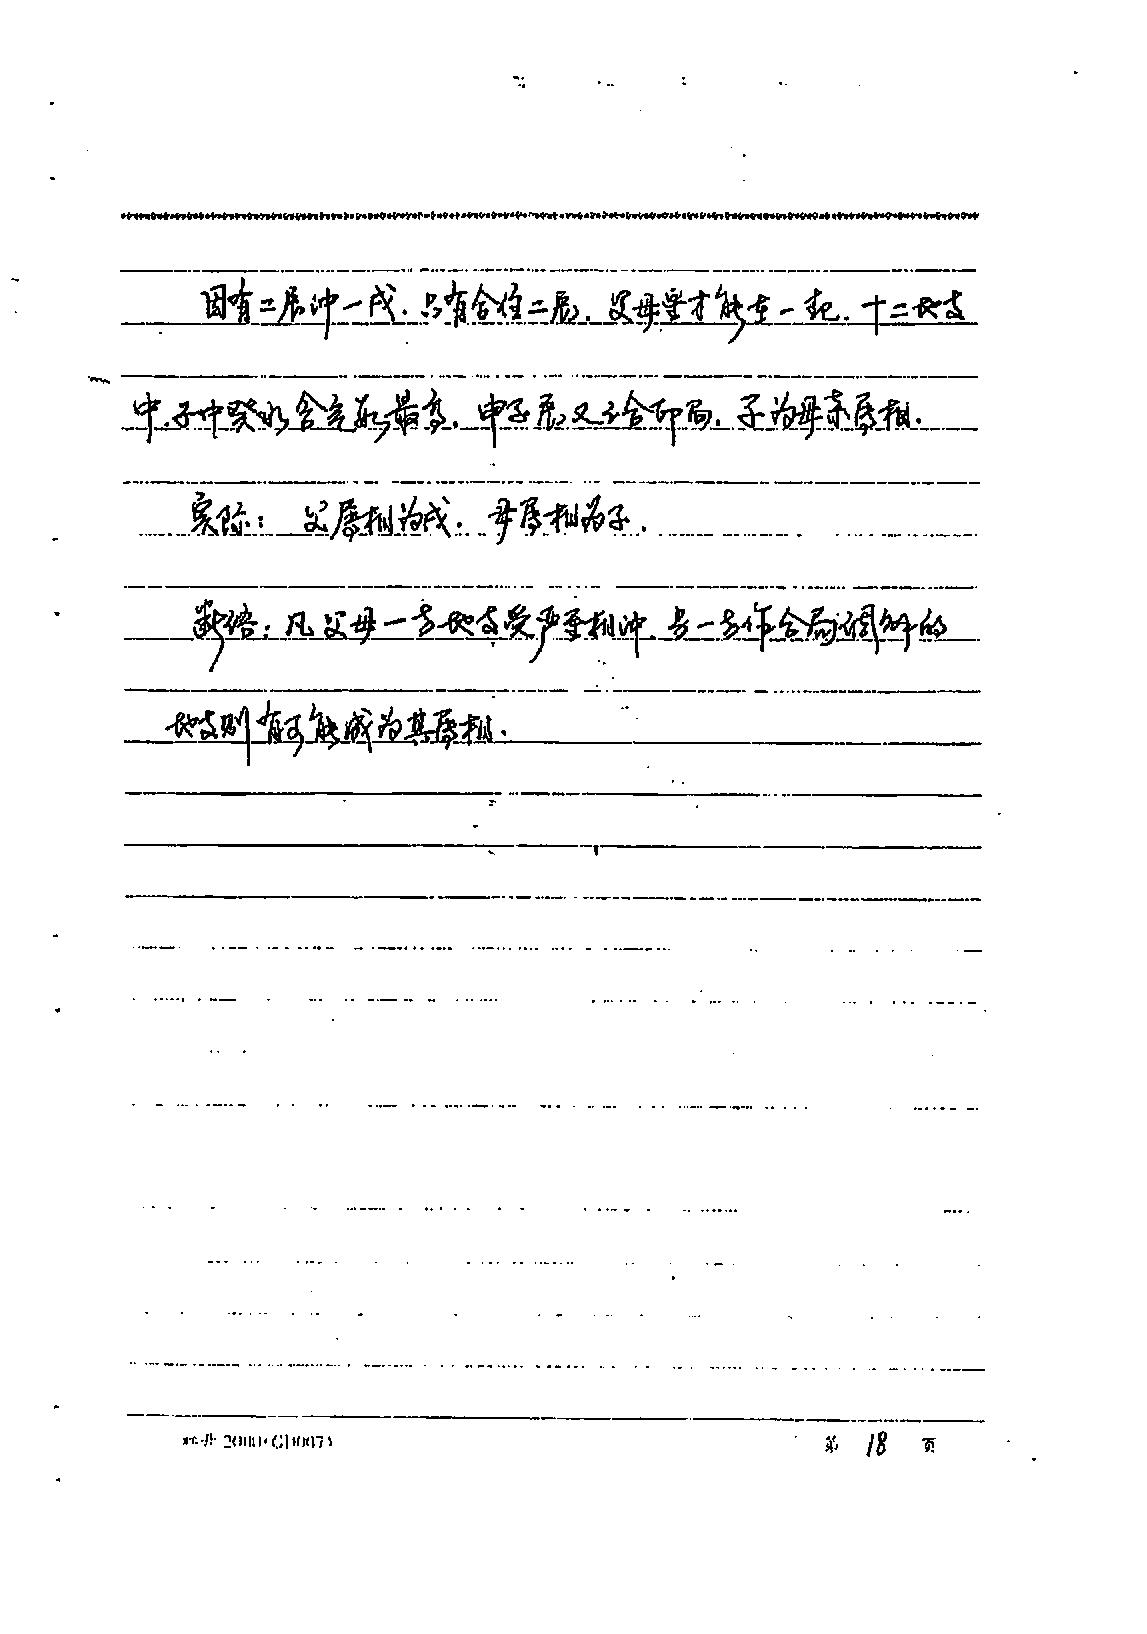 因有二辰冲一戌.只有合住二辰.父母星才能在一起.十二地支
中.子中癸水含气数最高.申子辰又三合印局.子为母亲属相.
实际：父属相为戌.母属相为子.
断语：凡父母一方地支受严重相冲.另一方作合局调解的
地支则有可能成为其属相.
第 18 页